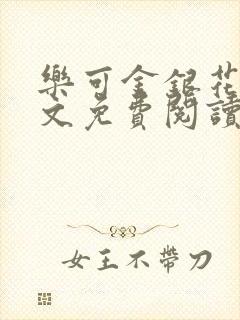 樂可金銀花
文免費閱讀
女王不帶刀